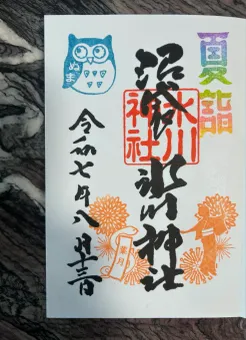 夏詣
沼袋氷川神社
氷川神社
令和七年八月十三日
ぬま
葉月